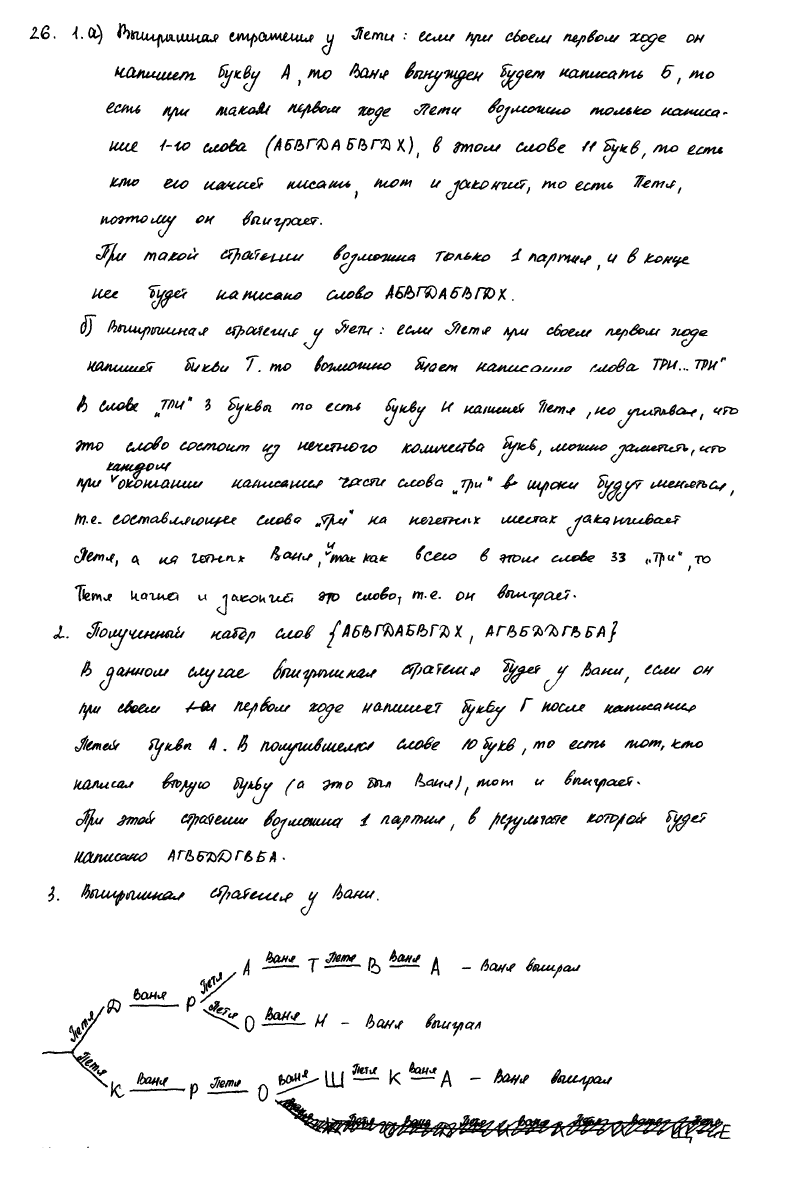 26. 1. а) Выигрышная стратегия у Пети: если при своем первом ходе он
напишет букву А, то Ваня вынужден будет написать Б, то
есть при таком первом ходе Пети возможно только написа-
ние 1-го слова (АБВГДАБВГДХ), в этом слове 11 букв, то есть
кто его начнет писать, тот и закончит, то есть Петя,
поэтому он выиграет.
При такой стратегии возможна только 1 партия, и в конце
нее будет написано слово АБВГДАБВГДХ.
б) Выигрышная стратегия у Пети: если Петя при своем первом ходе
напишет букву Т. то возможно будет написание слова ТРИ...ТРИ"
В слове „ТРИ" 3 буквы то есть букву И напишет Петя, но учитывая, что
это слово состоит из нечетного количества букв, можно заметить, что
каждом
при окончании написания части слова „три" строки будут меняться,
т.е. составляющее слова „три" на нечетных местах заканчивает
Петя, а на четных Ваня, и так как всего в этом слове 33 „три", то
Петя начнет и закончит это слово, т.е. он выиграет.
2. Полученный набор слов {АБВГДАБВГДХ, АГВБДДГВБА}
В данном случае выигрышная стратегия будет у Вани, если он
при своем первом ходе напишет букву Г после написания
Петей буквы А. В получившемся слове 10 букв, то есть тот, кто
написал вторую букву (а это был Ваня), тот и выиграет.
При этой стратегии возможна 1 партия, в результате которой будет
написано АГВБДДГВБА.
3. Выигрышная стратегия у Вани.
Петя А Ваня Т Петя В Ваня А – Ваня выиграл
Петя Д Ваня Р Петя О Ваня Н – Ваня выиграл
Петя К Ваня Р Петя О Ваня Ш Петя К Ваня А – Ваня выиграл